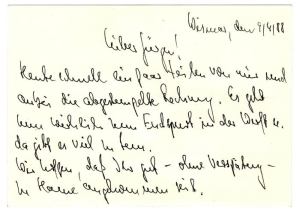 Wismar, den 9/4/88
Lieber Jürgen!
Heute schnell ein paar Zeilen von mir und
anbei die abgestempelte Rechnung. Es geht
nun wirklich zum Endspurt in der Werft u.
da gibt es viel zu tun.
Wir hoffen, daß Ihr gut - ohne Verspätung -
in angekommen seid.